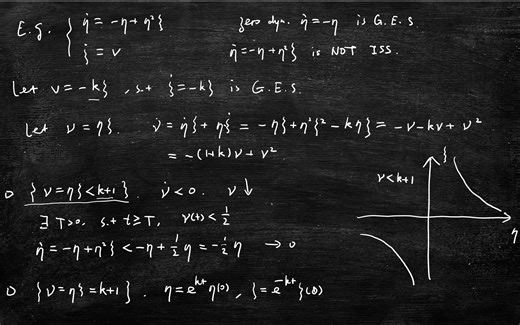 E.g. { η̇ = -η + η²ξ   zero dyn. η̇ = -η is G.E.S.
ξ̇ = v   η̇ = -η + η²ξ is NOT ISS.
Let v = -kξ, s.t. ξ̇ = -kξ is G.E.S.
Let ν = ηξ. ν̇ = η̇ξ + ηξ̇ = -ηξ + η²ξ² - kηξ = -ν - kν + ν²
= -(1+k)ν + ν²
○ {ν = ηξ < k+1}. ν̇ < 0. ν ↓
∃ T>0, s.t. t ≥ T, ν(t) < 1/2
η̇ = -η + η²ξ < -η + 1/2 η = -1/2 η → 0
○ {ν = ηξ = k+1}. η = e^{kt} η(0), ξ = e^{-kt} ξ(0)
ν < k+1
ξ
η